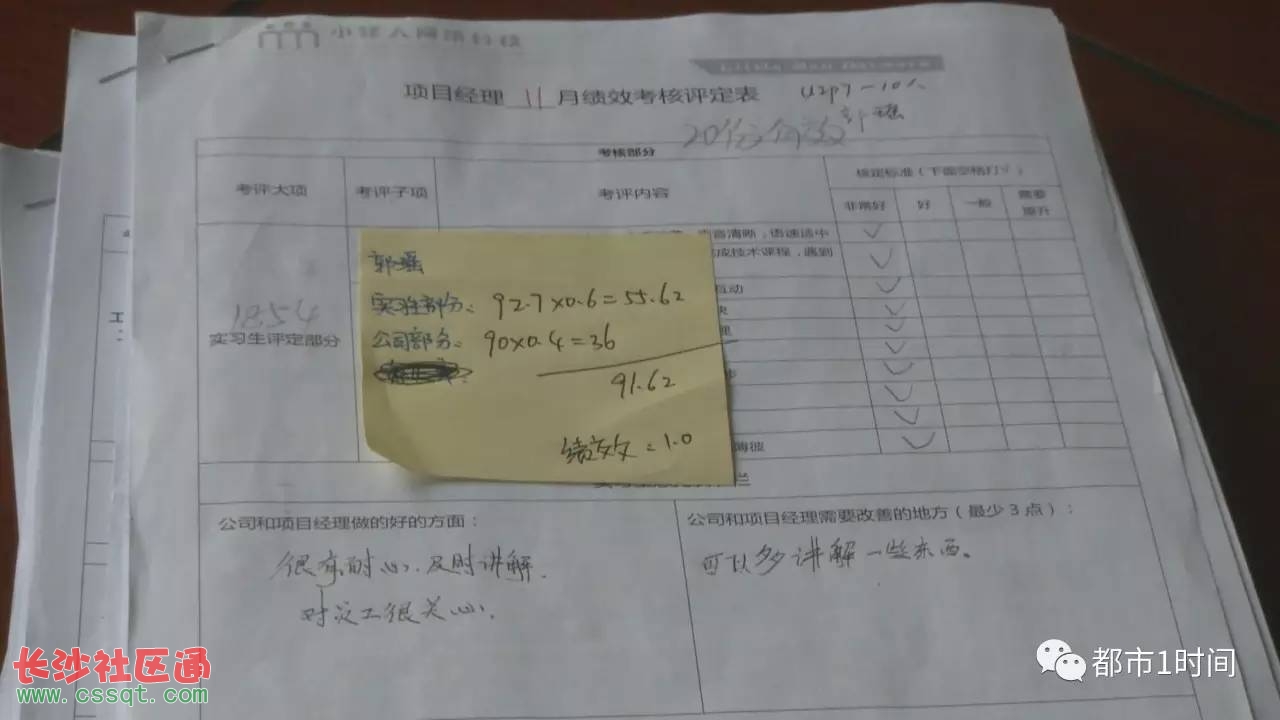 小矮人网络科技
Little Man Network
项目经理 11 月绩效考核评定表
20份有效
郭瑶
考核部分
考评大项
考评子项
考评内容
核定标准(下面空格打√)
非常好
好
一般
需要提升
语速适中
成技术课程,遇到
互动
1854
实习生评定部分
郭瑶
实习生部分: 92.7×0.6=55.62
公司部分: 90×0.4=36
91.62
绩效=1.0
公司和项目经理做的好的方面:
很有耐心,及时讲解.
对员工很关心.
公司和项目经理需要改善的地方(最少3点):
可以多讲解一些东西。
长沙社区通
www.cssqt.com
都市1时间